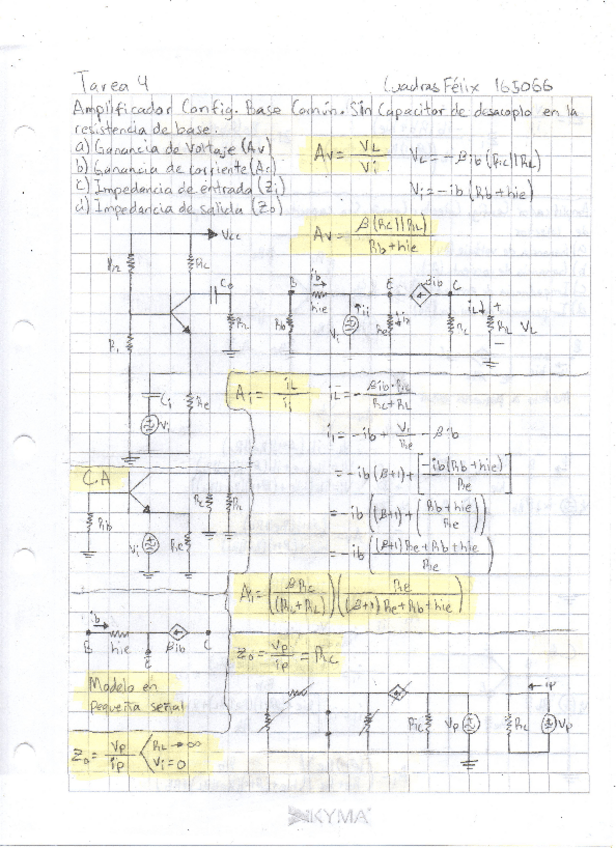 Tarea 4
Cuadras Félix 165066
Amplificador Config. Base Común. Sin Capacitor de desacoplo en la
resistencia de base.
a) Ganancia de Voltaje (Av)
b) Ganancia de corriente (Ai)
c) Impedancia de entrada (Zi)
d) Impedancia de salida (Zo)
Av = VL / Vi
VL = -βib(Rc||RL)
Vi = -ib(Rb+hie)
Av = β(Rc||RL) / Rb+hie
Vcc
R2
Rc
Co
RL
R1
Ci
Re
Vi
B
ib
hie
ii
E
βib
C
Rb
Vi
Re
iL
Rc
RL
VL
+
-
Ai = iL / ii
iL = -βib·Rc / Rc+RL
ii = -ib + Vi/Re - βib
= -ib(β+1) + [-ib(Rb+hie) / Re]
= -ib((β+1) + (Rb+hie / Re))
= -ib((β+1)Re+Rb+hie / Re)
Ai = (βRc / (Rc+RL)) (Re / (β+1)Re+Rb+hie)
C.A
Rb
Vi
Re
Rc
ib
B
hie
E
βib
C
Modelo en
Pequeña señal
Zo = Vp / ip
RL → ∞
Vi = 0
Zo = Vp / ip = Rc
Rc
Vp
Rc
ip
Vp
KYMA